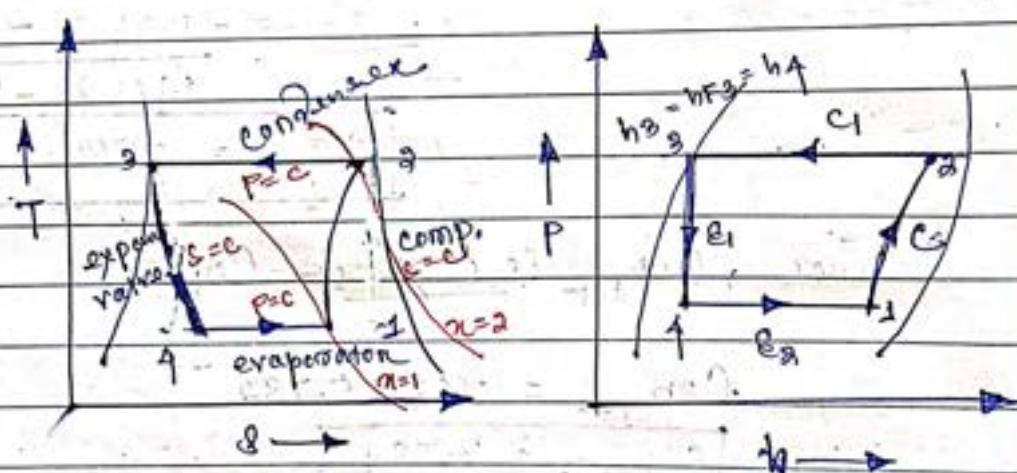 condenser
3
P=C
2
T
expan
valve
S=C
comp.
S=C
P=C
4
evaporator
1
x=2
x=1
S
h3 = hF3 = h4
3
C1
2
P
E1
C2
4
E2
1
h